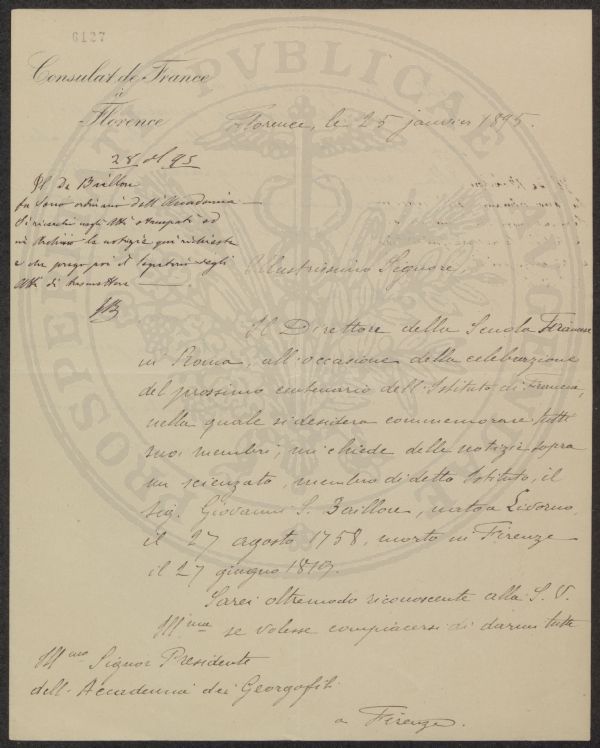 6127
Consulat de France
à
Florence
Florence, le 25 janvier 1895.
28 del 95
Il De Baillou
fu Socio ordinario dell'Accademia
Si ricerchi negli Atti stampati ed
in Archivio le notizie qui richieste
e che prego poi il Segretario degli
Atti di trasmettere
Illustrissimo Signore,
Il Direttore della Scuola Francese
in Roma, all'occasione della celebrazione
del prossimo centenario dell'Istituto di Francia,
nella quale si desidera commemorare tutti
suoi membri, mi chiede delle notizie sopra
un scienzato, membro di detto Istituto, il
Sig. Giovanni S. Baillou, nato a Livorno,
il 27 agosto 1758, morto in Firenze
il 27 giugno 1819.
Sarei oltremodo riconoscente alla S. V.
Ill.ma se volesse compiacersi di darmi tutte
Ill.mo Signor Presidente
dell'Accademia dei Georgofili
a Firenze.